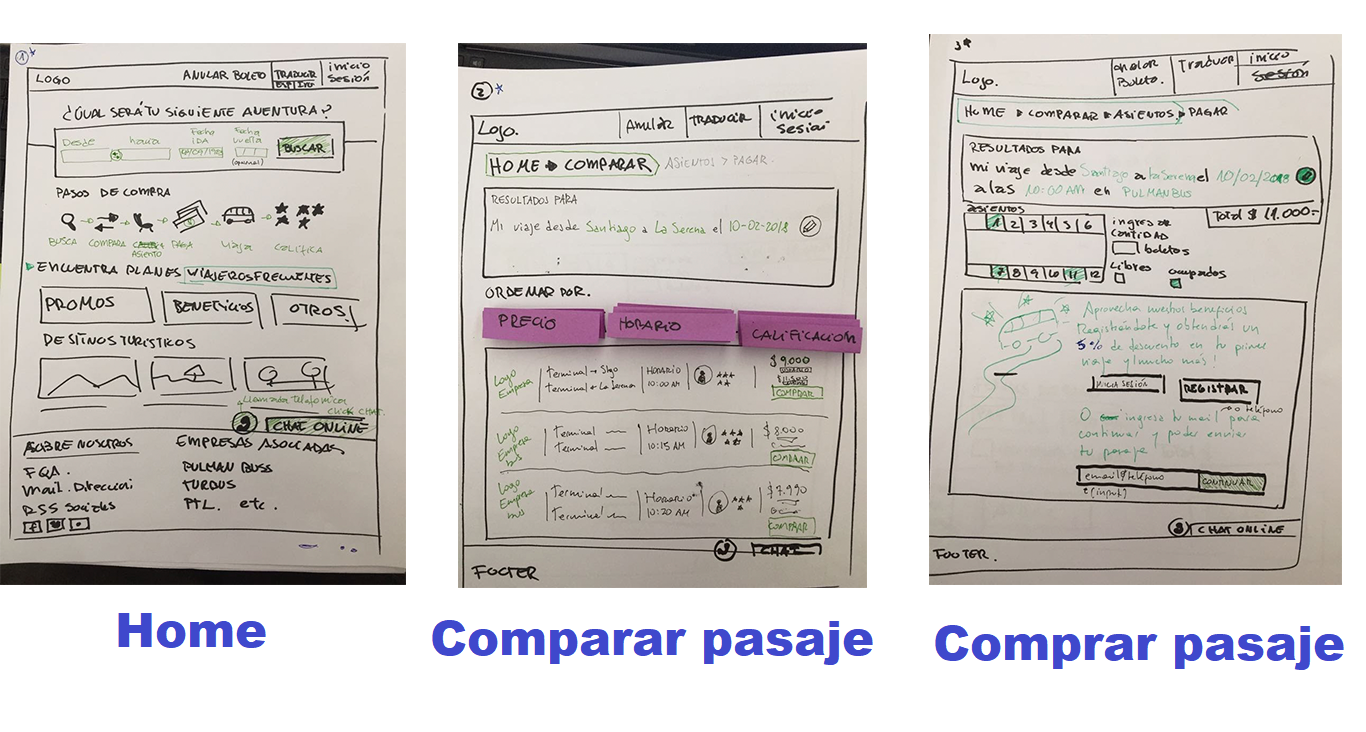 1*
LOGO
ANULAR BOLETO
TRADUCIR
ESP | ING
inicio
sesión
¿CUAL SERÁ TU SIGUIENTE AVENTURA?
Desde
hacia
Fecha
IDA
Fecha
vuelta
(opcional)
BUSCAR
PASOS DE COMPRA
BUSCA
COMPARA
ASIENTO
PAGA
Viaja
CALIFICA
ENCUENTRA PLANES VIAJEROS FRECUENTES
PROMOS
BENEFICIOS
OTROS!
DESTINOS TURISTICOS
Llamada telefonica
click CHAT.
CHAT ONLINE
SOBRE NOSOTROS
EMPRESAS ASOCIADAS
FQA.
PULMAN BUSS
Mail. Dirección
TURBUS
RSS Sociales
PTL. etc.
Home
2*
Logo.
Anular
TRADUCIR
inicio
sesión
HOME COMPARAR ASIENTOS > PAGAR.
RESULTADOS PARA
Mi viaje desde Santiago a La Serena el 10-02-2018
ORDENAR POR.
PRECIO
HORARIO
CALIFICACIÓN
Logo
Empresa
Terminal → Stgo
Terminal ← La Serena
HORARIO
10:00 AM
$9.000
COMPRAR
Logo
Empresa
bus
Terminal
Terminal
Horario
10:15 AM
$8.000
COMPRAR
Logo
Empresa
bus
Terminal
Terminal
Horario
10:20 AM
$7.990
COMPRAR
CHAT
FOOTER
Comparar pasaje
3*
Logo.
anular
Boleto.
Traducir
inicio
sesión
HOME COMPARAR ASIENTOS PAGAR
RESULTADOS PARA
mi viaje desde Santiago a La Serena el 10/02/2018
a las 10:00 AM en PULMANBUS
Total $ 11.000.-
ASIENTOS
1 2 3 4 5 6
7 8 9 10 11 12
ingresar
CANTIDAD
boletos
Libres
ocupados
Aprovecha nuestros beneficios
Registrándote y obtendrás un
5% de descuento en tu primer
viaje y mucho más!
INICIA SESIÓN
REGISTRAR
o teléfono
O ingresa tu mail para
continuar y poder enviar
tu pasaje
email/teléfono
CONTINUAR
(input)
CHAT ONLINE
FOOTER.
Comprar pasaje